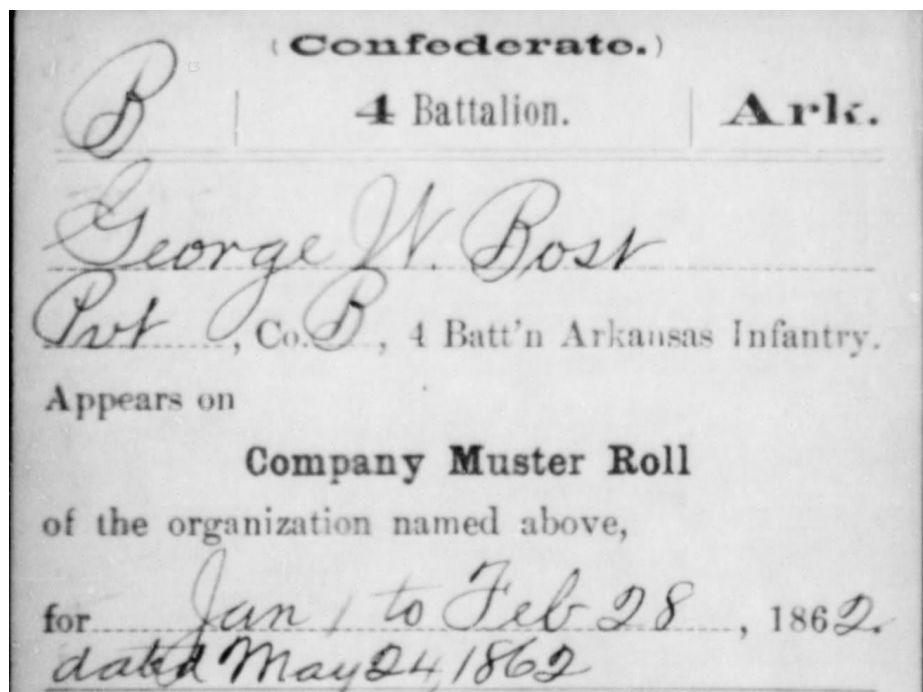 (Confederate.)
B | 4 Battalion. | Ark.
George W. Bost
Pvt, Co. B, 4 Batt'n Arkansas Infantry.
Appears on
Company Muster Roll
of the organization named above,
for Jan 1 to Feb 28, 1862.
dated May 24, 1862